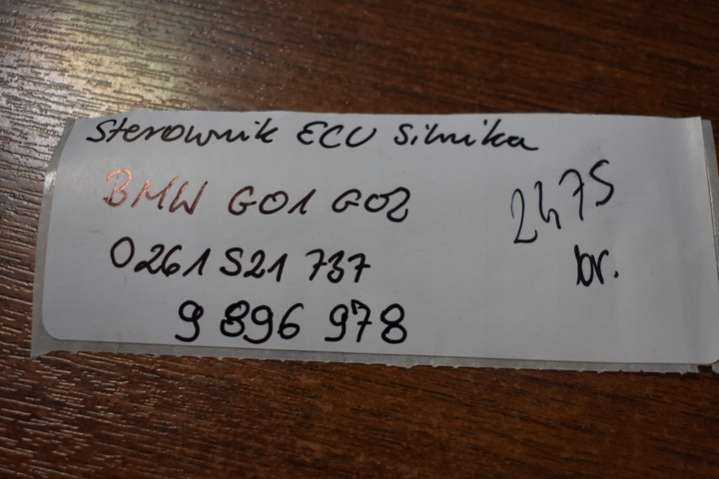 Sterownik ECU Silnika
BMW G01 G02
0261 S21 737
9 896 978
2475
br.